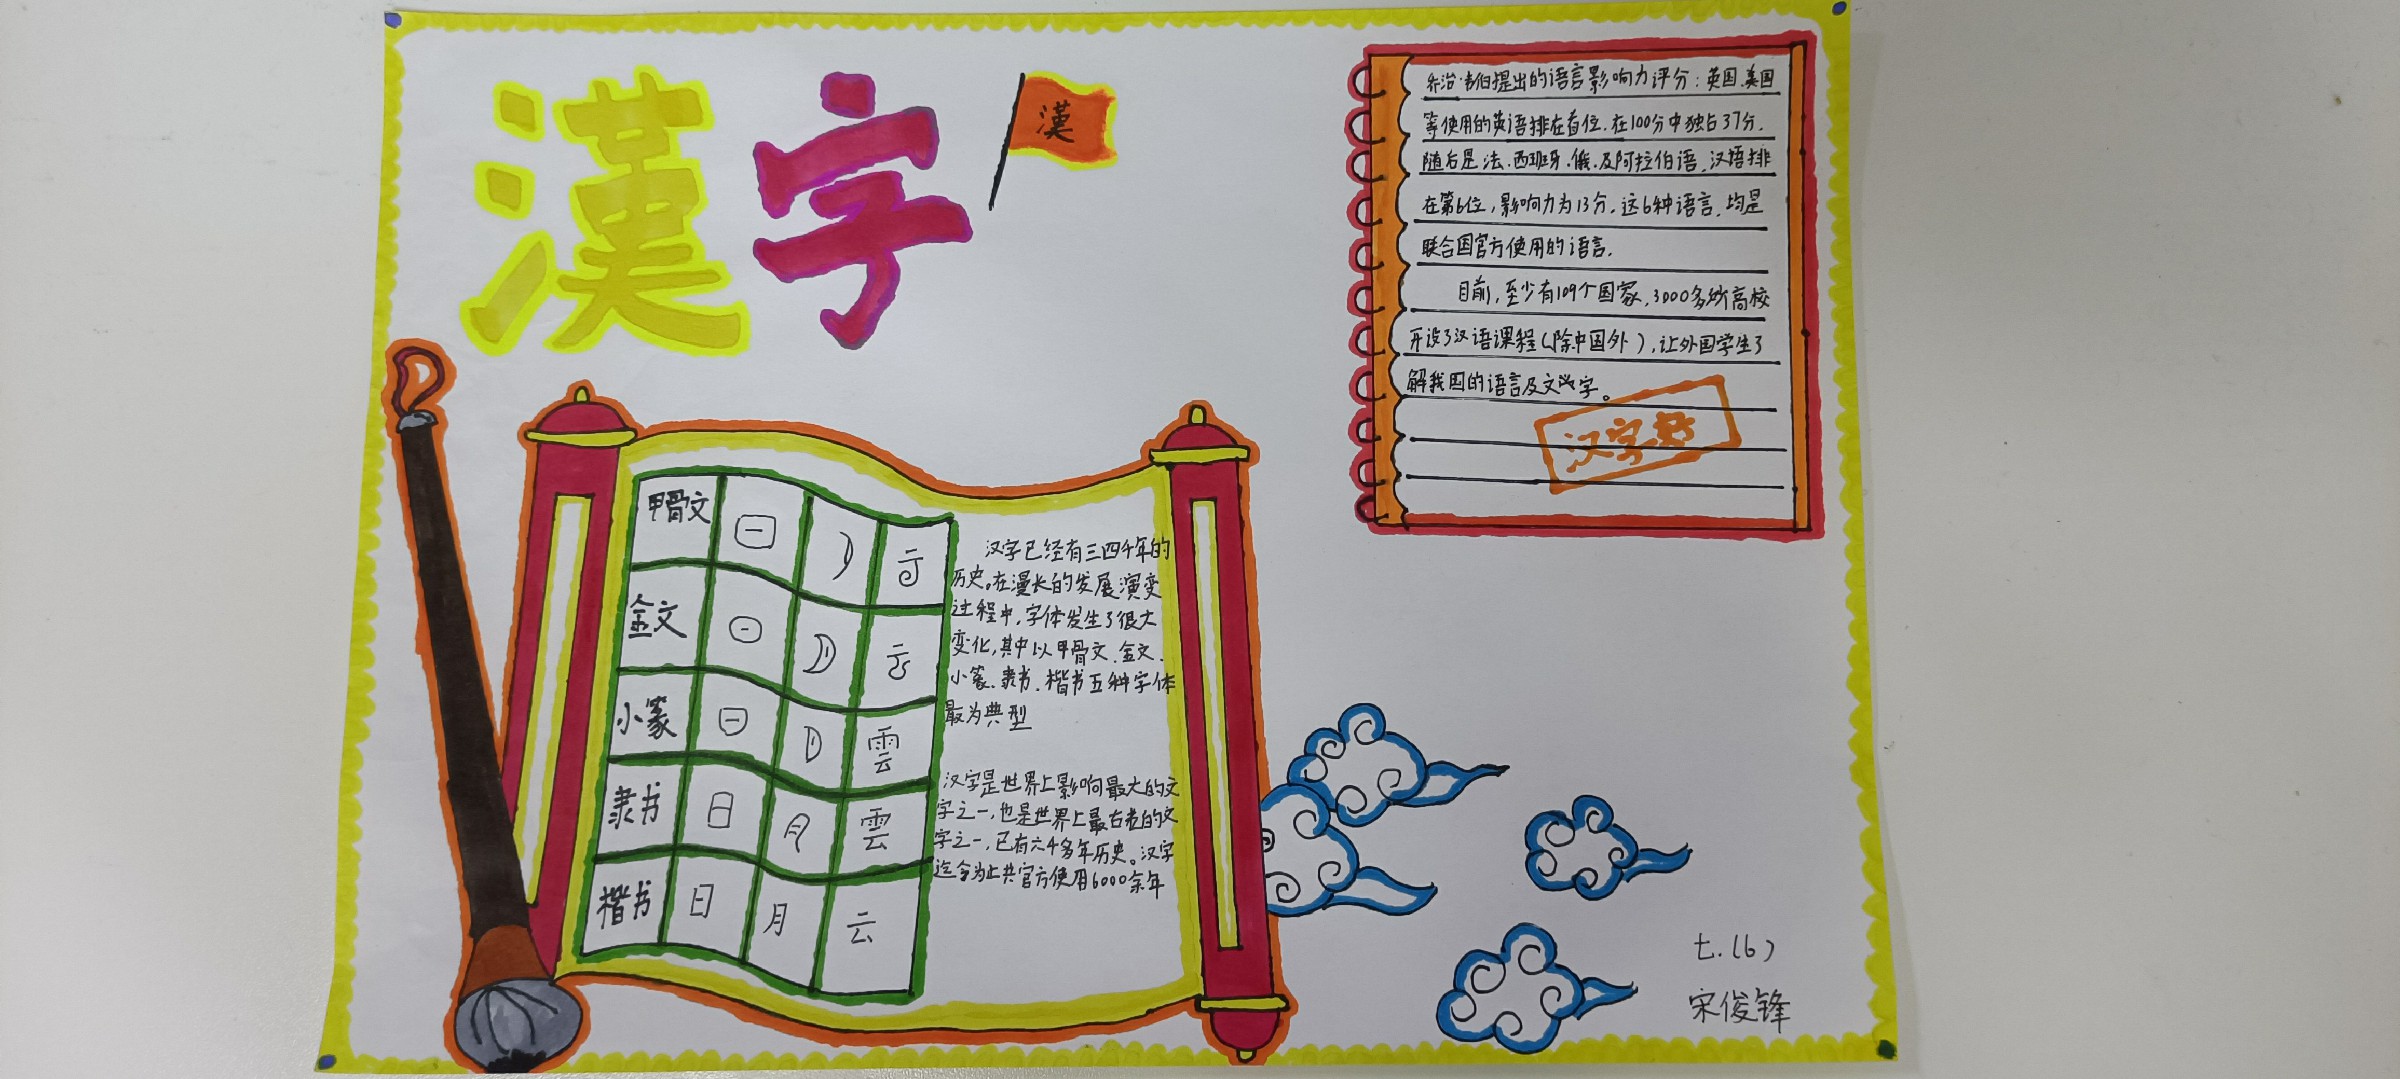 漢字
漢
乔治·韦伯提出的语言影响力评分：英国.美国
等使用的英语排在首位.在100分中独占37分.
随后是.法.西班牙.俄.及阿拉伯语.汉语排
在第6位，影响力为13分.这6种语言.均是
联合国官方使用的语言.
目前，至少有109个国家.3000多所高校
开设了汉语课程(除中国外），让外国学生了
解我国的语言及文字。
甲骨文
金文
小篆
隶书 日 月 雲
楷书 日 月 云
汉字已经有三四千年的
历史。在漫长的发展演变
过程中，字体发生了很大
变化，其中以甲骨文.金文.
小篆.隶书.楷书五种字体
最为典型
汉字是世界上影响最大的文
字之一，也是世界上最古老的文
字之一，已有六千多年历史。汉字
迄今为止共官方使用6000余年
七.(6)
宋俊锋